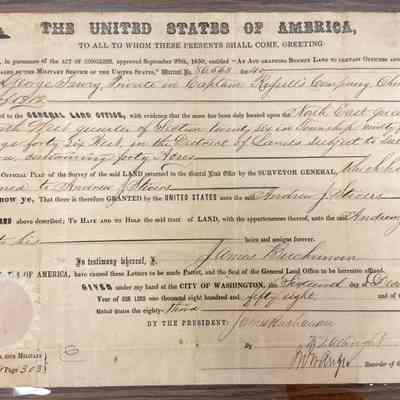 THE UNITED STATES OF AMERICA,
TO ALL TO WHOM THESE PRESENTS SHALL COME, GREETING:
in pursuance of the ACT OF CONGRESS, approved September 28th, 1850, entitled "AN ACT GRANTING BOUNTY LAND TO CERTAIN OFFICERS AND
GAGED IN THE MILITARY SERVICE OF THE UNITED STATES," Warrant No. 40
Private in Captain Russell's Company,
1812
to the GENERAL LAND OFFICE, with evidence that the same has been duly located upon the North East
West quarter of Section twenty six in Township
forty six West, in the District of Lands subject to
containing forty Acres
OFFICIAL PLAT of the Survey of the said LAND returned to the General Land Office by the SURVEYOR GENERAL, which
to Andrew J Stivers
now ye, That there is therefore GRANTED by the UNITED STATES unto the said Andrew J Stivers
above described; TO HAVE AND TO HOLD the said tract of LAND, with the appurtenances thereof, unto the said Andrew
to his heirs and assigns forever.
In testimony whereof, I, James Buchanan
OF AMERICA, have caused these Letters to be made Patent, and the Seal of the General Land Office to be hereunto affixed.
GIVEN under my hand at the CITY OF WASHINGTON, the second day
YEAR OF OUR LORD one thousand eight hundred and fifty eight
States the eighty-third
BY THE PRESIDENT: James Buchanan
By
Recorder of the
303